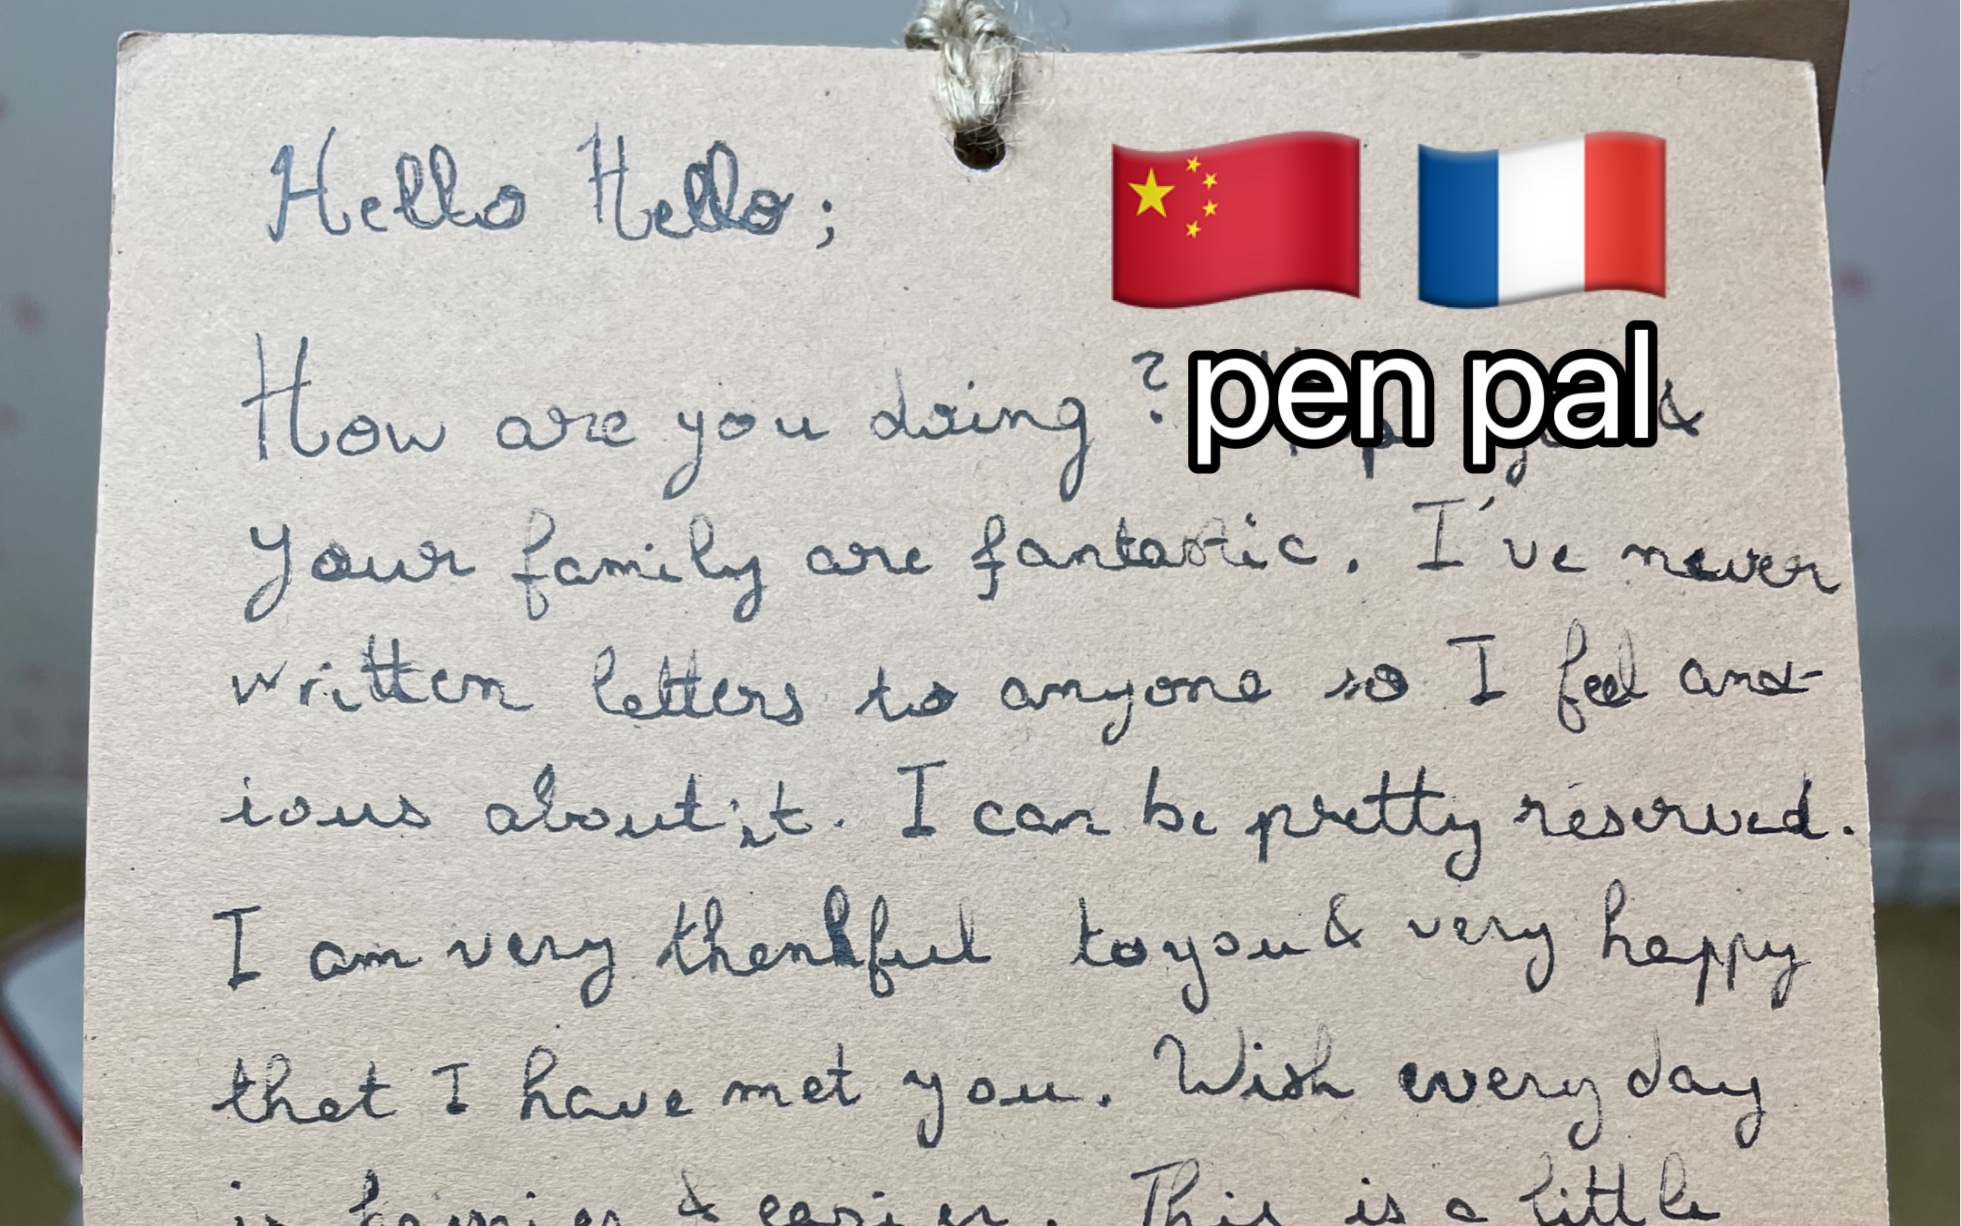 Hello Hello;
pen pal
How are you doing ? &
your family are fantastic. I've never
written letters to anyone so I feel anx-
ious about it. I can be pretty reserved.
I am very thankful to you & very happy
that I have met you. Wish every day
is & easier. This is a little